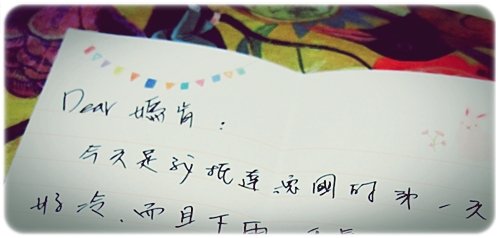 Dear 媽肯：
今天是我抵達德國的第一天
好冷，而且下雨